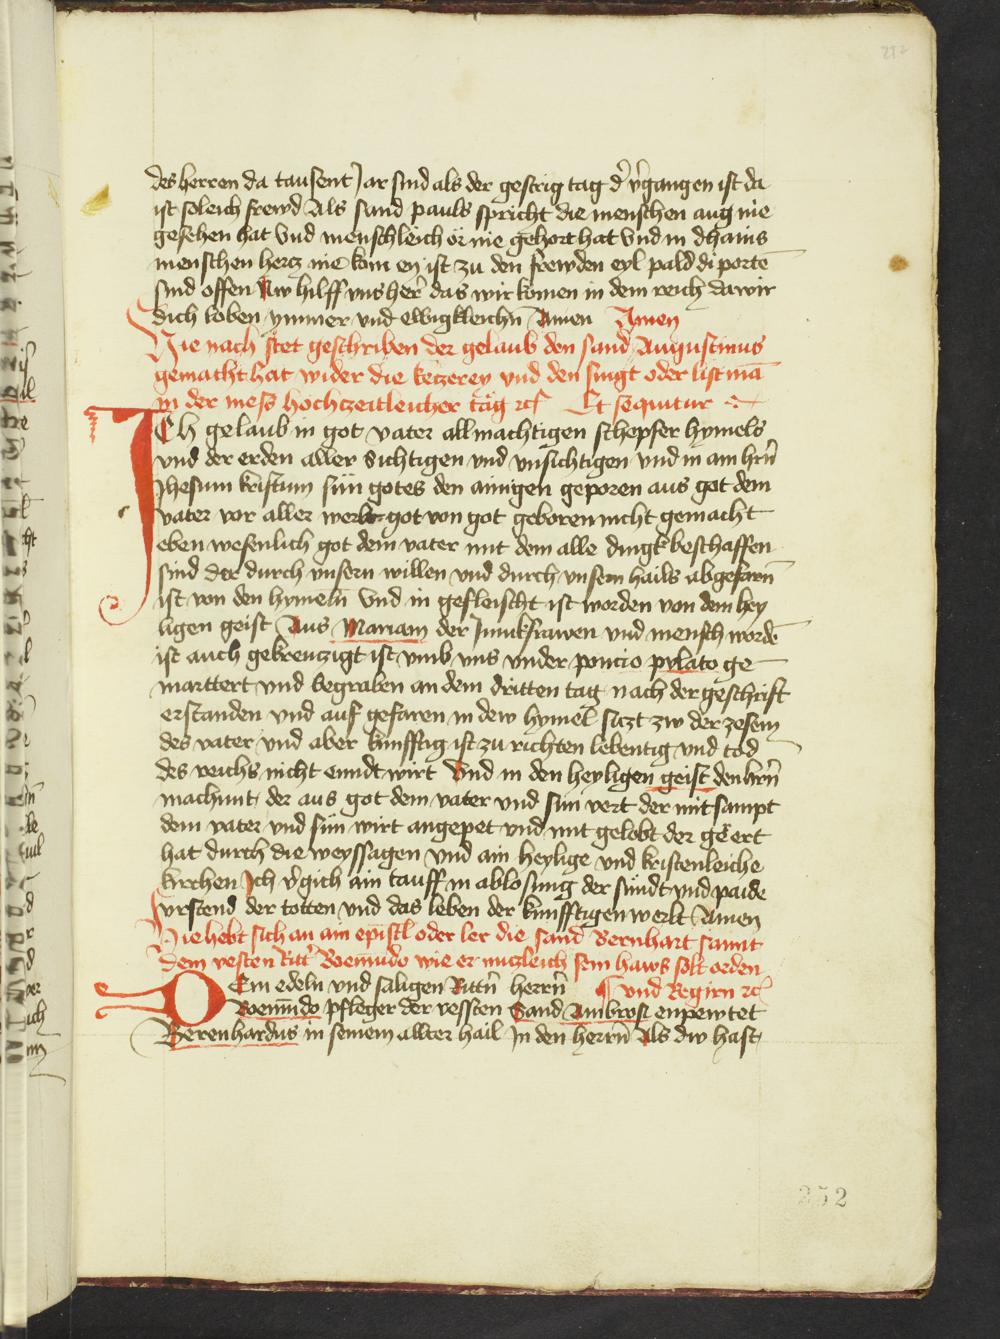 252
des herren da tausent Jar sind als der gestrig tag d' v'gangen ist da
ist soleich frewd Als sand pauls spricht die menschen aug nie
gesehen hat Vnd menschleich or nie gehort hat Vnd in dhains
menschen hercz nie kom ey ist zu den frewden eyl pald di portē
sind offen Nw hilff vns her' das wir komen in dem reich da wir
dich loben ymmer vnd ewigkleichn̄ Amen Amen
Hie nach stet geschriben der gelaub den sand Augustinus
gemacht hat wider die keczerey vnd den singt oder list mā
in der mess hochczeitleicher tag rcʃ Et sequitur
ICh gelaub in got vater allmachtigen schepfer hymels
vnd der erden aller sichtigen vnd vnsichtigen vnd in ain hrn̄
Jhesum kristum sün gotes den ainigen geporen aus got dem
vater vor aller werlt got von got geboren nicht gemacht
eben wesenlich got dem vater mit dem alle dingk beschaffen
sind der durch vnsern willen vnd durch vnsern hails abgefarn̄
ist von den hymeln̄ Vnd in gefleischt ist worden von dem hey
ligen geist Aus Mariam der Junkfrawen vnd mensch wordē
ist auch gekreuczigt ist vmb vns vnder poncio pylato ge
marttert vnd begraben an dem dritten tag nach der geschrift
erstanden vnd auf gefaren in dew hymel siczt zw der zesem
des vater vnd aber kunfftig ist zu richten lebentig vnd tod
des reichs nicht enndt wirt Vnd in den heyligen geist den hrn̄
machunt der aus got dem vater vnd sün vert der mit sampt
dem vater vnd sün wirt angepet vnd mit gelobt der geert
hat durch die weyssagen vnd ain heylige vnd kristenleiche
kirchen Ich v'gich ain tauff in ablosung der sündt vnd paide
vrstend der totten vnd das leben der kunfftigen werlt Amen
Hie hebt sich an ain epistl oder ler die sand Bernhart sannt
dem vesten Ritt' Boemudo wie er nuczleich sein haws solt orden
DEm edeln vnd saligen Rittn̄ herrn̄ ¶ vnd Regirn rcʃ
Roemūdo pfleger der vessten Sand Ambrosi enpewtet
Berenhardus in seinem allter hail In den herrn̄ Als dw hast
252